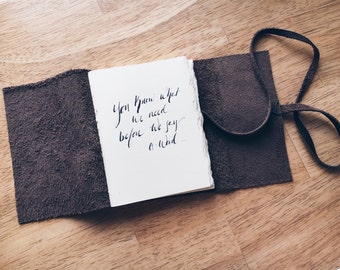 you know what
we need
before we say
a word